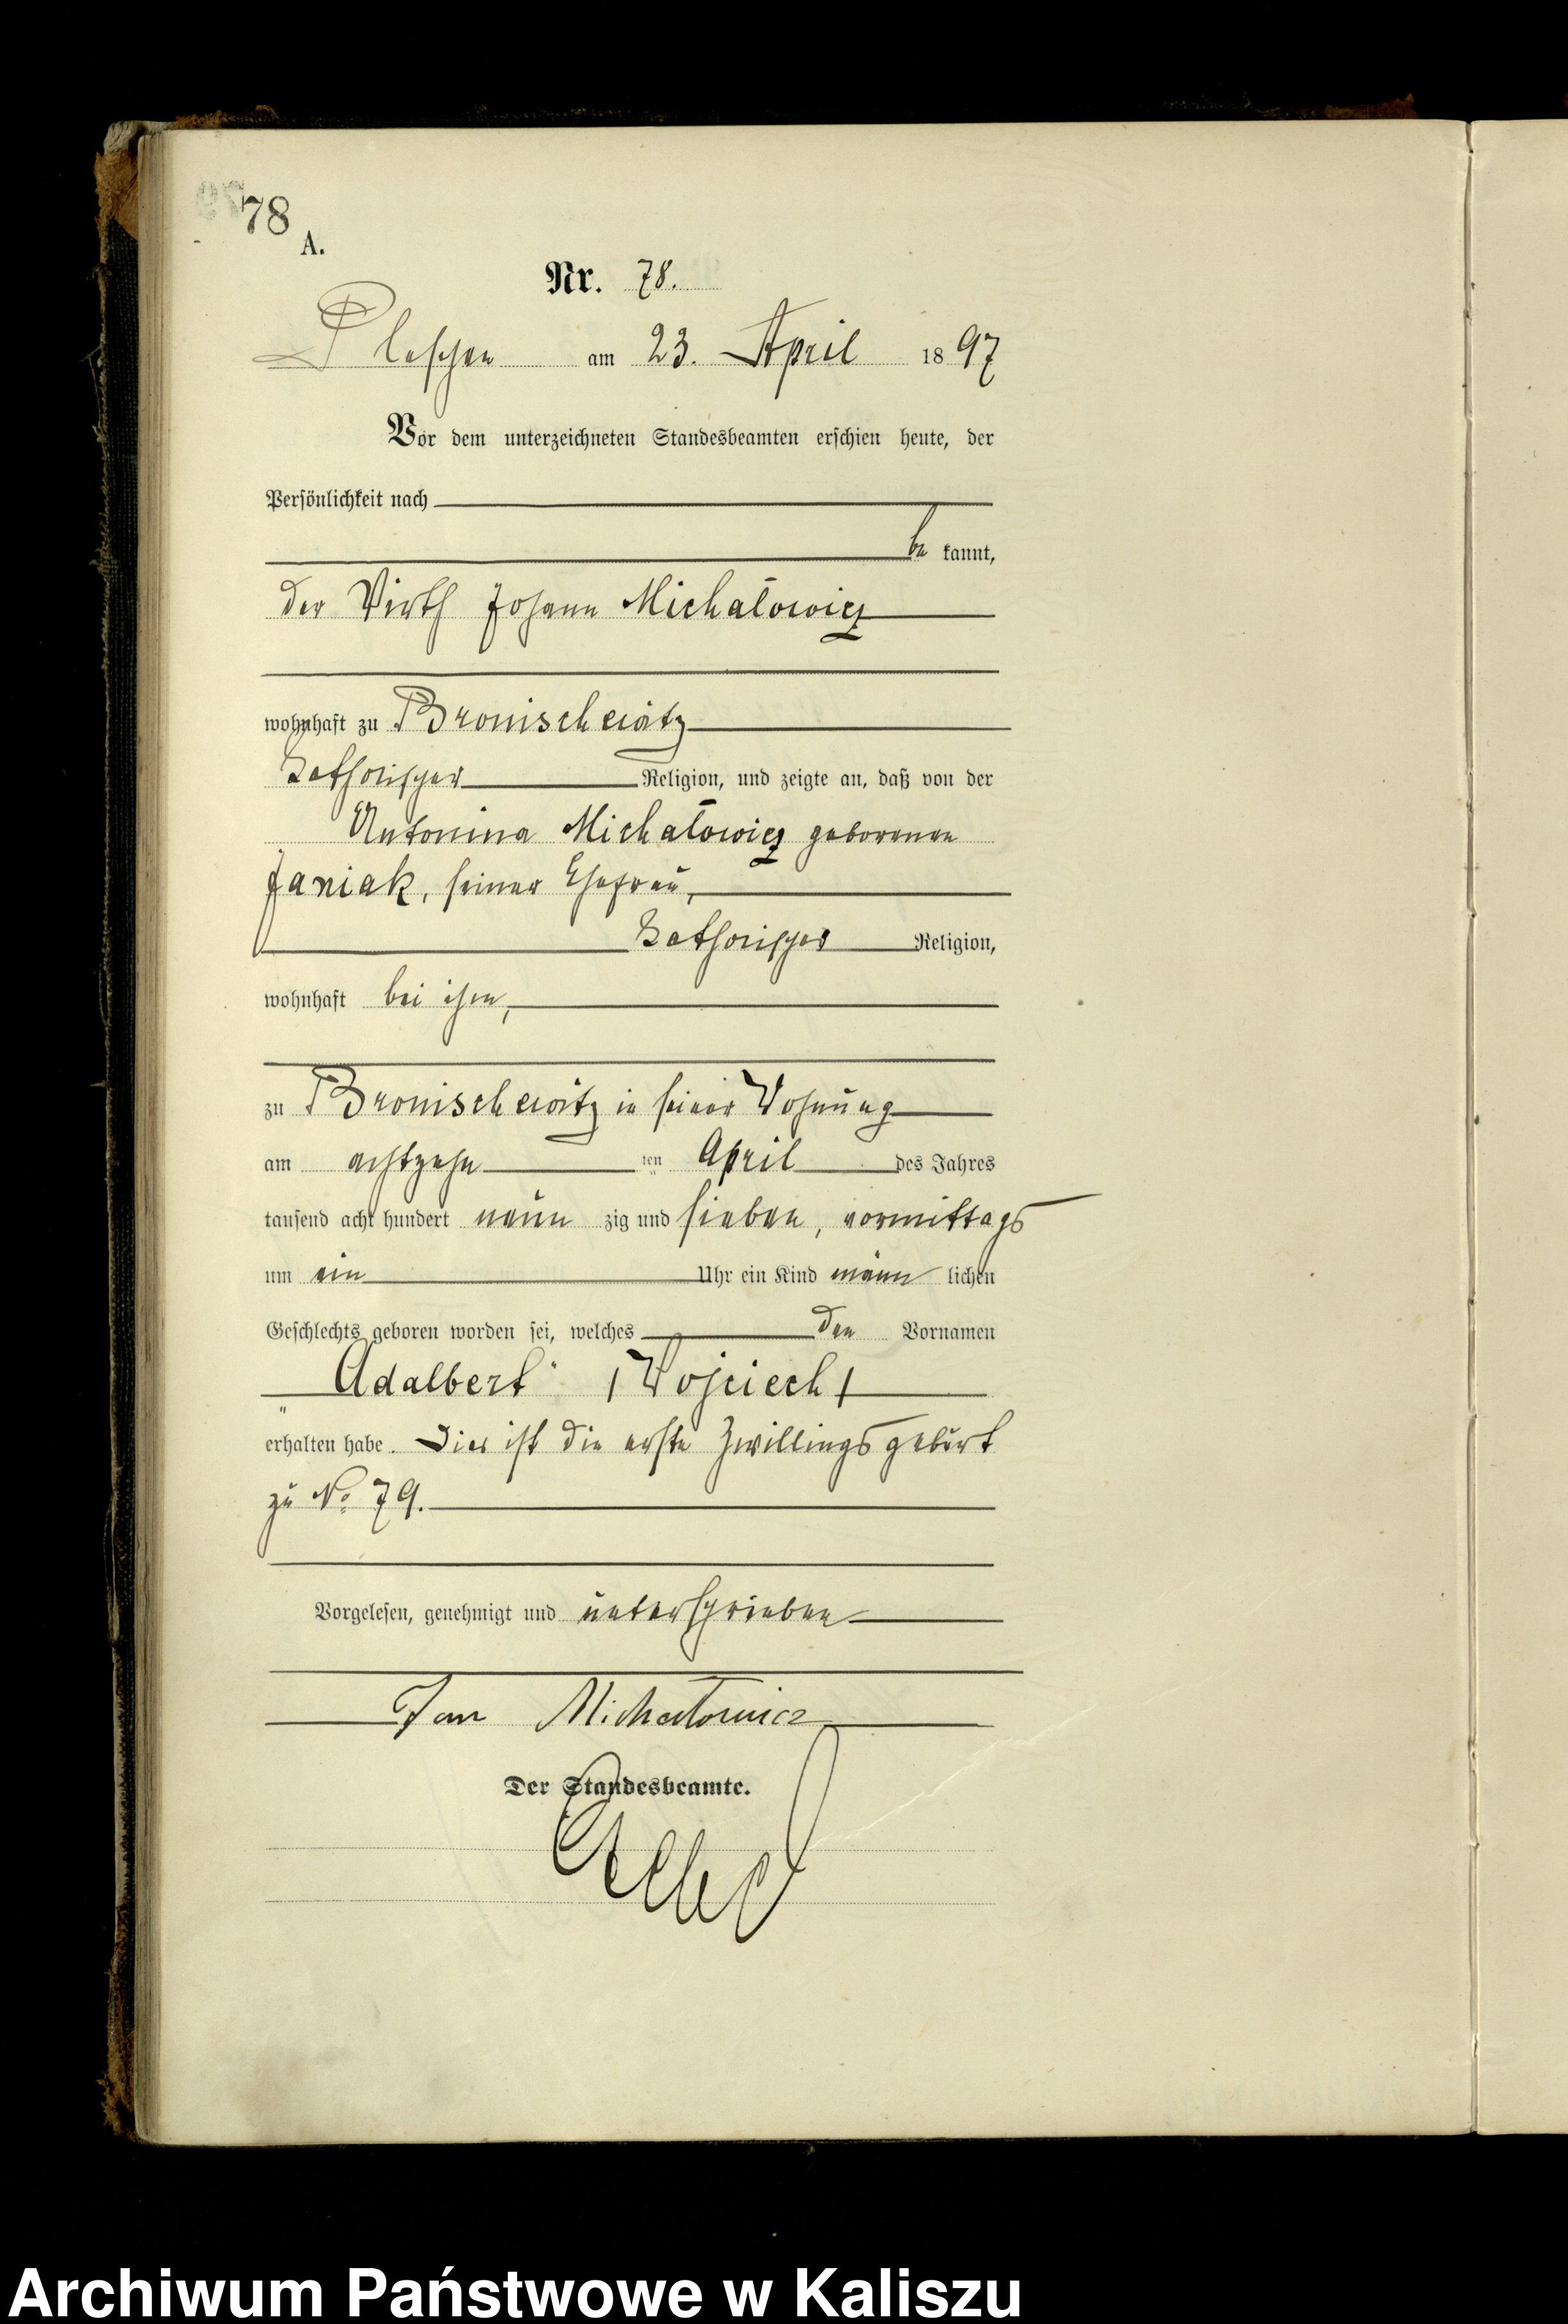 78
A.
Nr. 78.
Pleschen am 23. April 1897
Vor dem unterzeichneten Standesbeamten erschien heute, der
Persönlichkeit nach
be kannt,
der Wirth Johann Michałowicz
wohnhaft zu Bronischewitz
katholischer Religion, und zeigte an, daß von der
Antonina Michałowicz geborenen
Janiak, seiner Ehefrau,
katholischer Religion,
wohnhaft bei ihm,
zu Bronischewitz in seiner Wohnung
am achtzehn ten April des Jahres
tausend acht hundert neun zig und sieben, vormittags
um ein Uhr ein Kind männ lichen
Geschlechts geboren worden sei, welches den Vornamen
„Adalbert" /Wojciech/
erhalten habe. Dies ist die erste Zwillingsgeburt
zu No. 79.
Vorgelesen, genehmigt und unterschrieben
Jan Michałowicz
Der Standesbeamte.
Archiwum Państwowe w Kaliszu